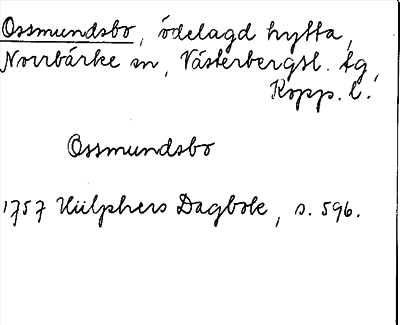 Ossmundsbo, ödelagd hytta,
Norrbärke sn, Västerbergsl. tg,
Kopp. l.
Ossmundsbo
1757 Hülphers Dagbok, s. 596.